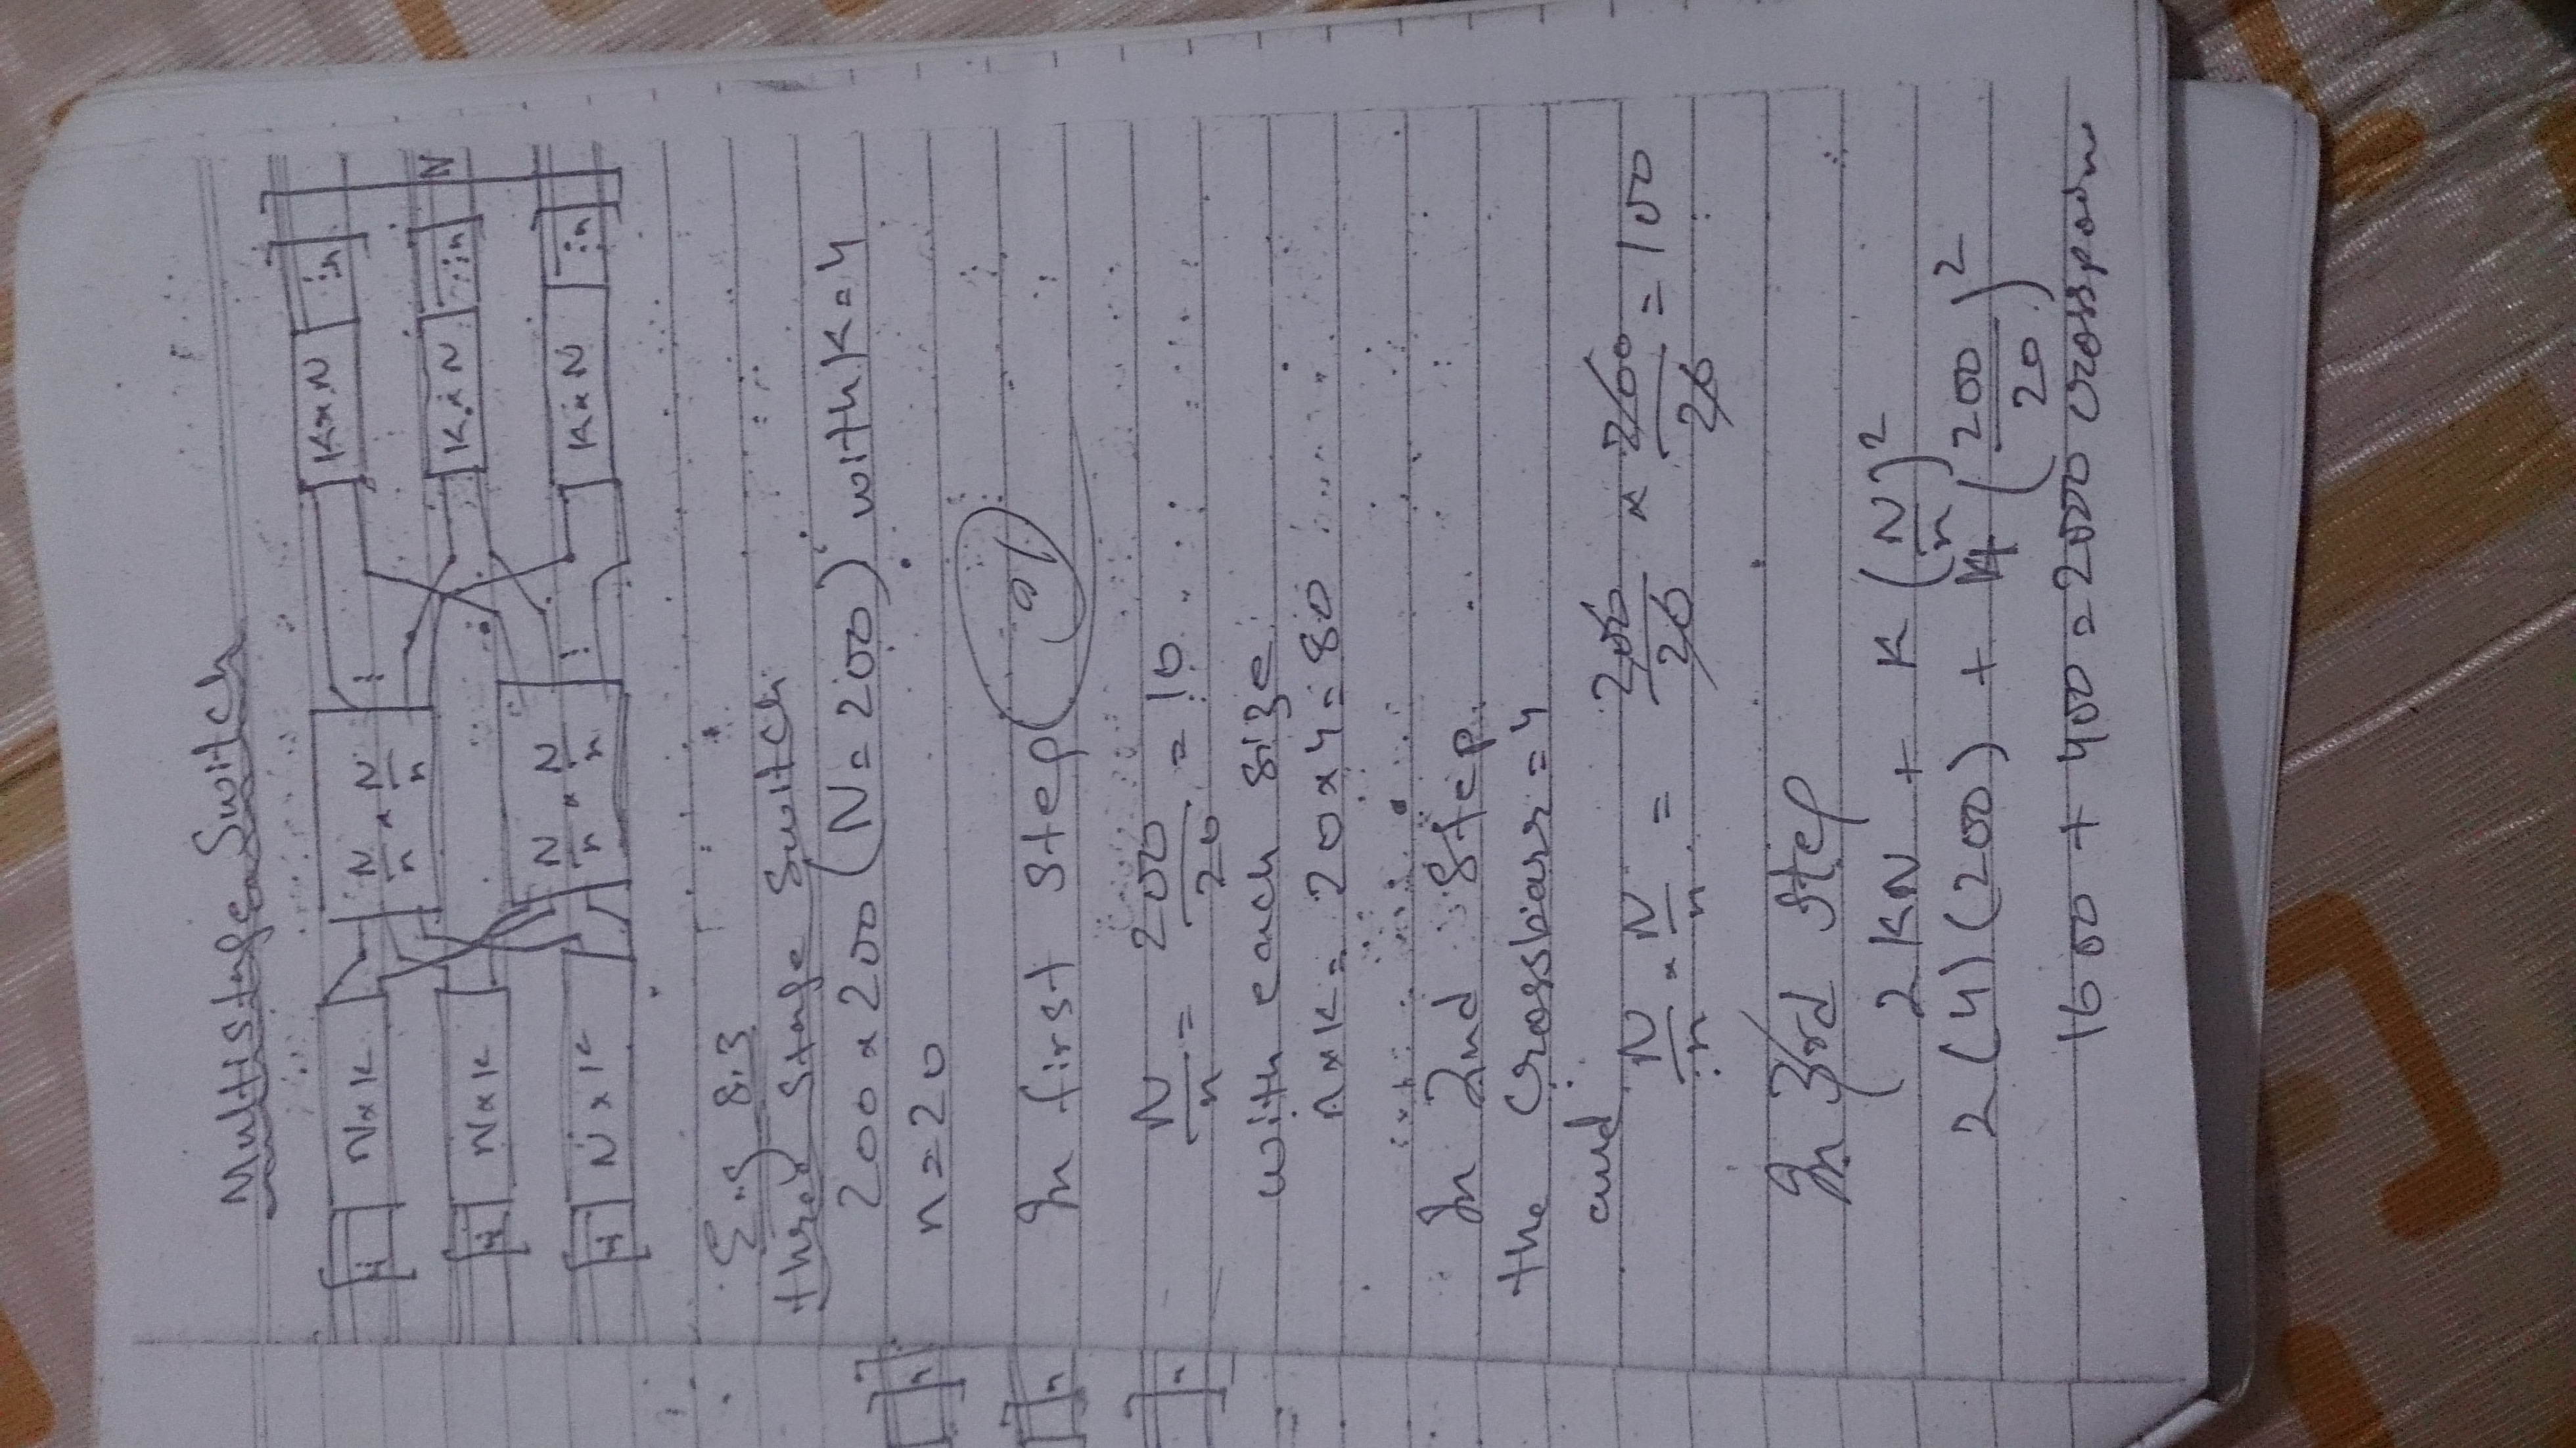 Multistage Switch
n N×K N/n × N/n K×N n
n N×K K×N n N
n N×K N/n × N/n K×N n
Eng 8.3
three stage Switch
200 × 200 (N = 200) with K = 4
n = 20
In first step
N/n = 200/20 = 10
with each size
n×K = 20×4 = 80
In 2nd step
the Crossbar = 4
and
N/n × N/n = 200/20 × 200/20 = 100
In 3rd step
2KN + K (N/n)²
2(4)(200) + 4 (200/20)²
1600 + 400 = 2000 crosspoin